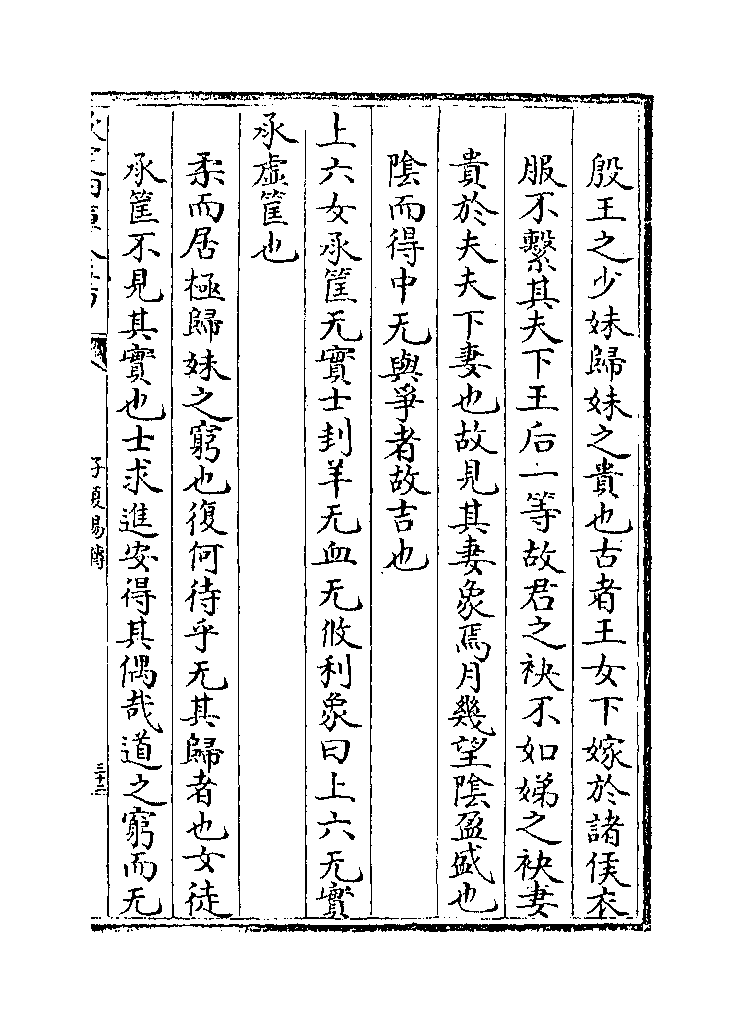 殷王之少妹歸妹之貴也古者王女下嫁於諸侯衣
服不繫其夫下王后一等故君之袂不如娣之袂妻
貴於夫夫下妻也故見其妻象焉月幾望陰盈盛也
陰而得中无與爭者故吉也
上六女承筐无實士刲羊无血无攸利象曰上六无實
承虛筐也
柔而居極歸妹之窮也復何待乎无其歸者也女徒
承筐不見其實也士求進安得其偶哉道之窮而无
子夏易傳
三十二